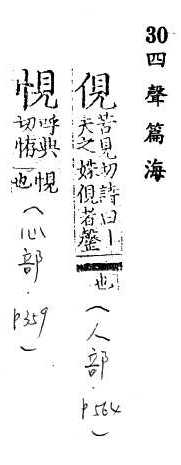 30 四聲篇海
俔 苦見切詩曰丨天之妹俔者磬也(人部.p564)
悓 呼典切悔悓也(心部.p359)